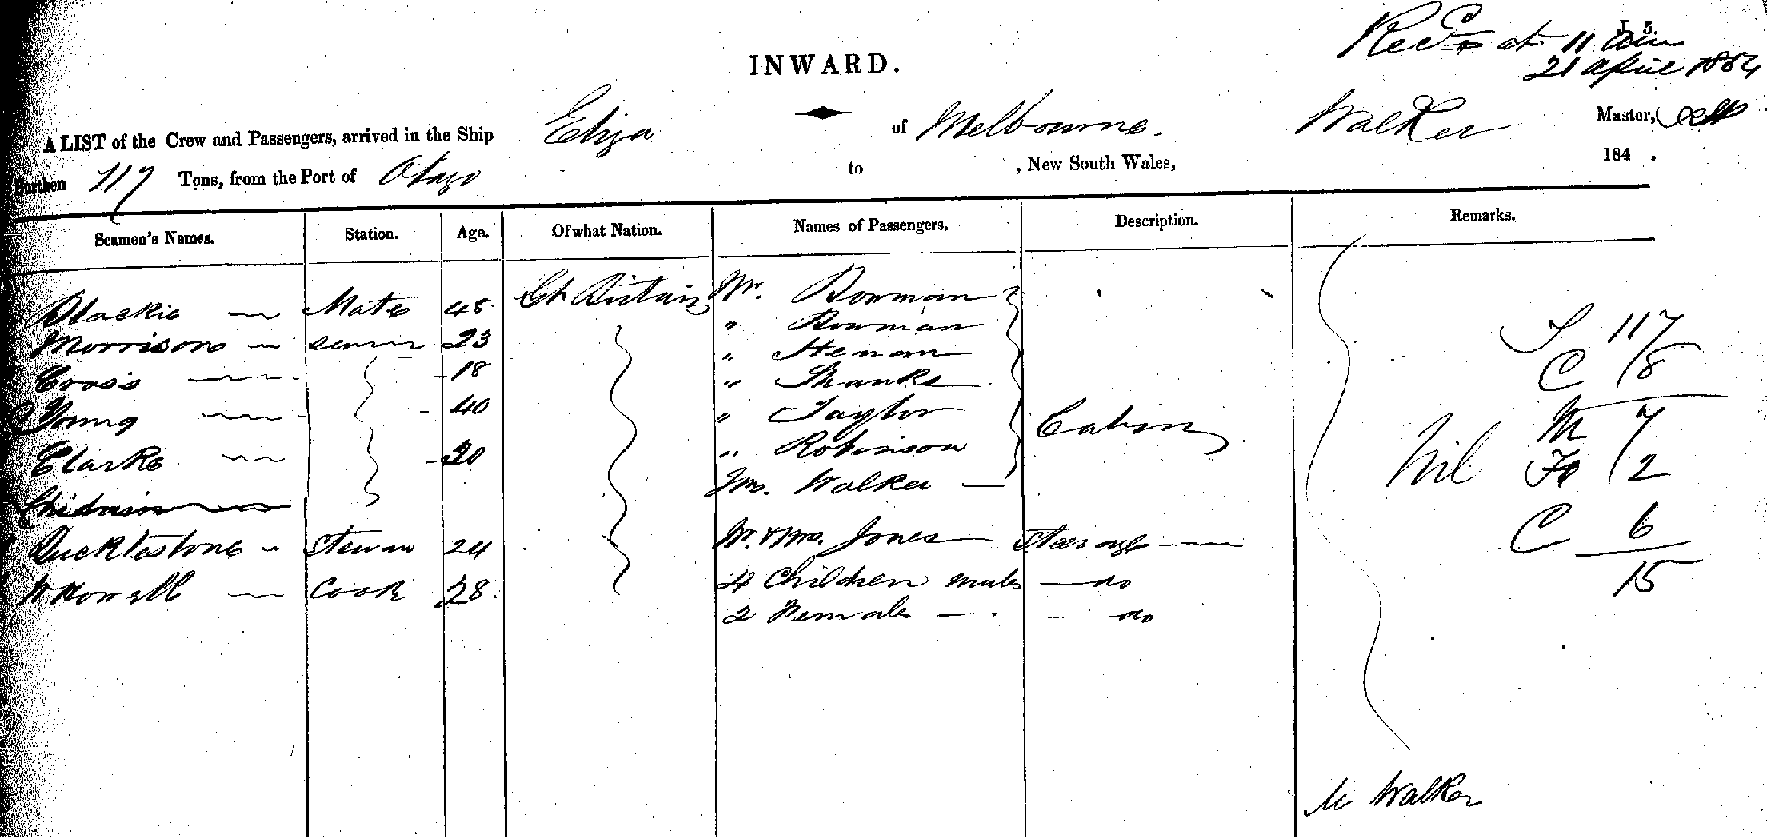 L 5
Recd at 11 am
21 April 1854
INWARD.
A LIST of the Crew and Passengers, arrived in the Ship Eliza of Melbourne. Walker Master,
Burthen 117 Tons, from the Port of Otago to , New South Wales, 184 .
Seamen's Names. Station. Age. Of what Nation. Names of Passengers. Description. Remarks.
Blackie Mate 45 Gt Britain Mr. Bowman
Morrison 23 " Bowman
Cross 18 " Heman
" Shanks
Young 40 " Taylor
Cabin
Clarke 30 " Robinson
Mrs. Walker
Ducklestone 24 Mr. & Mrs. Jones Steerage
Howell Cook 28 4 Children males do
2 Female do
T 117
C 8
M 7
Nil Fe 2
C 6
15
M Walker